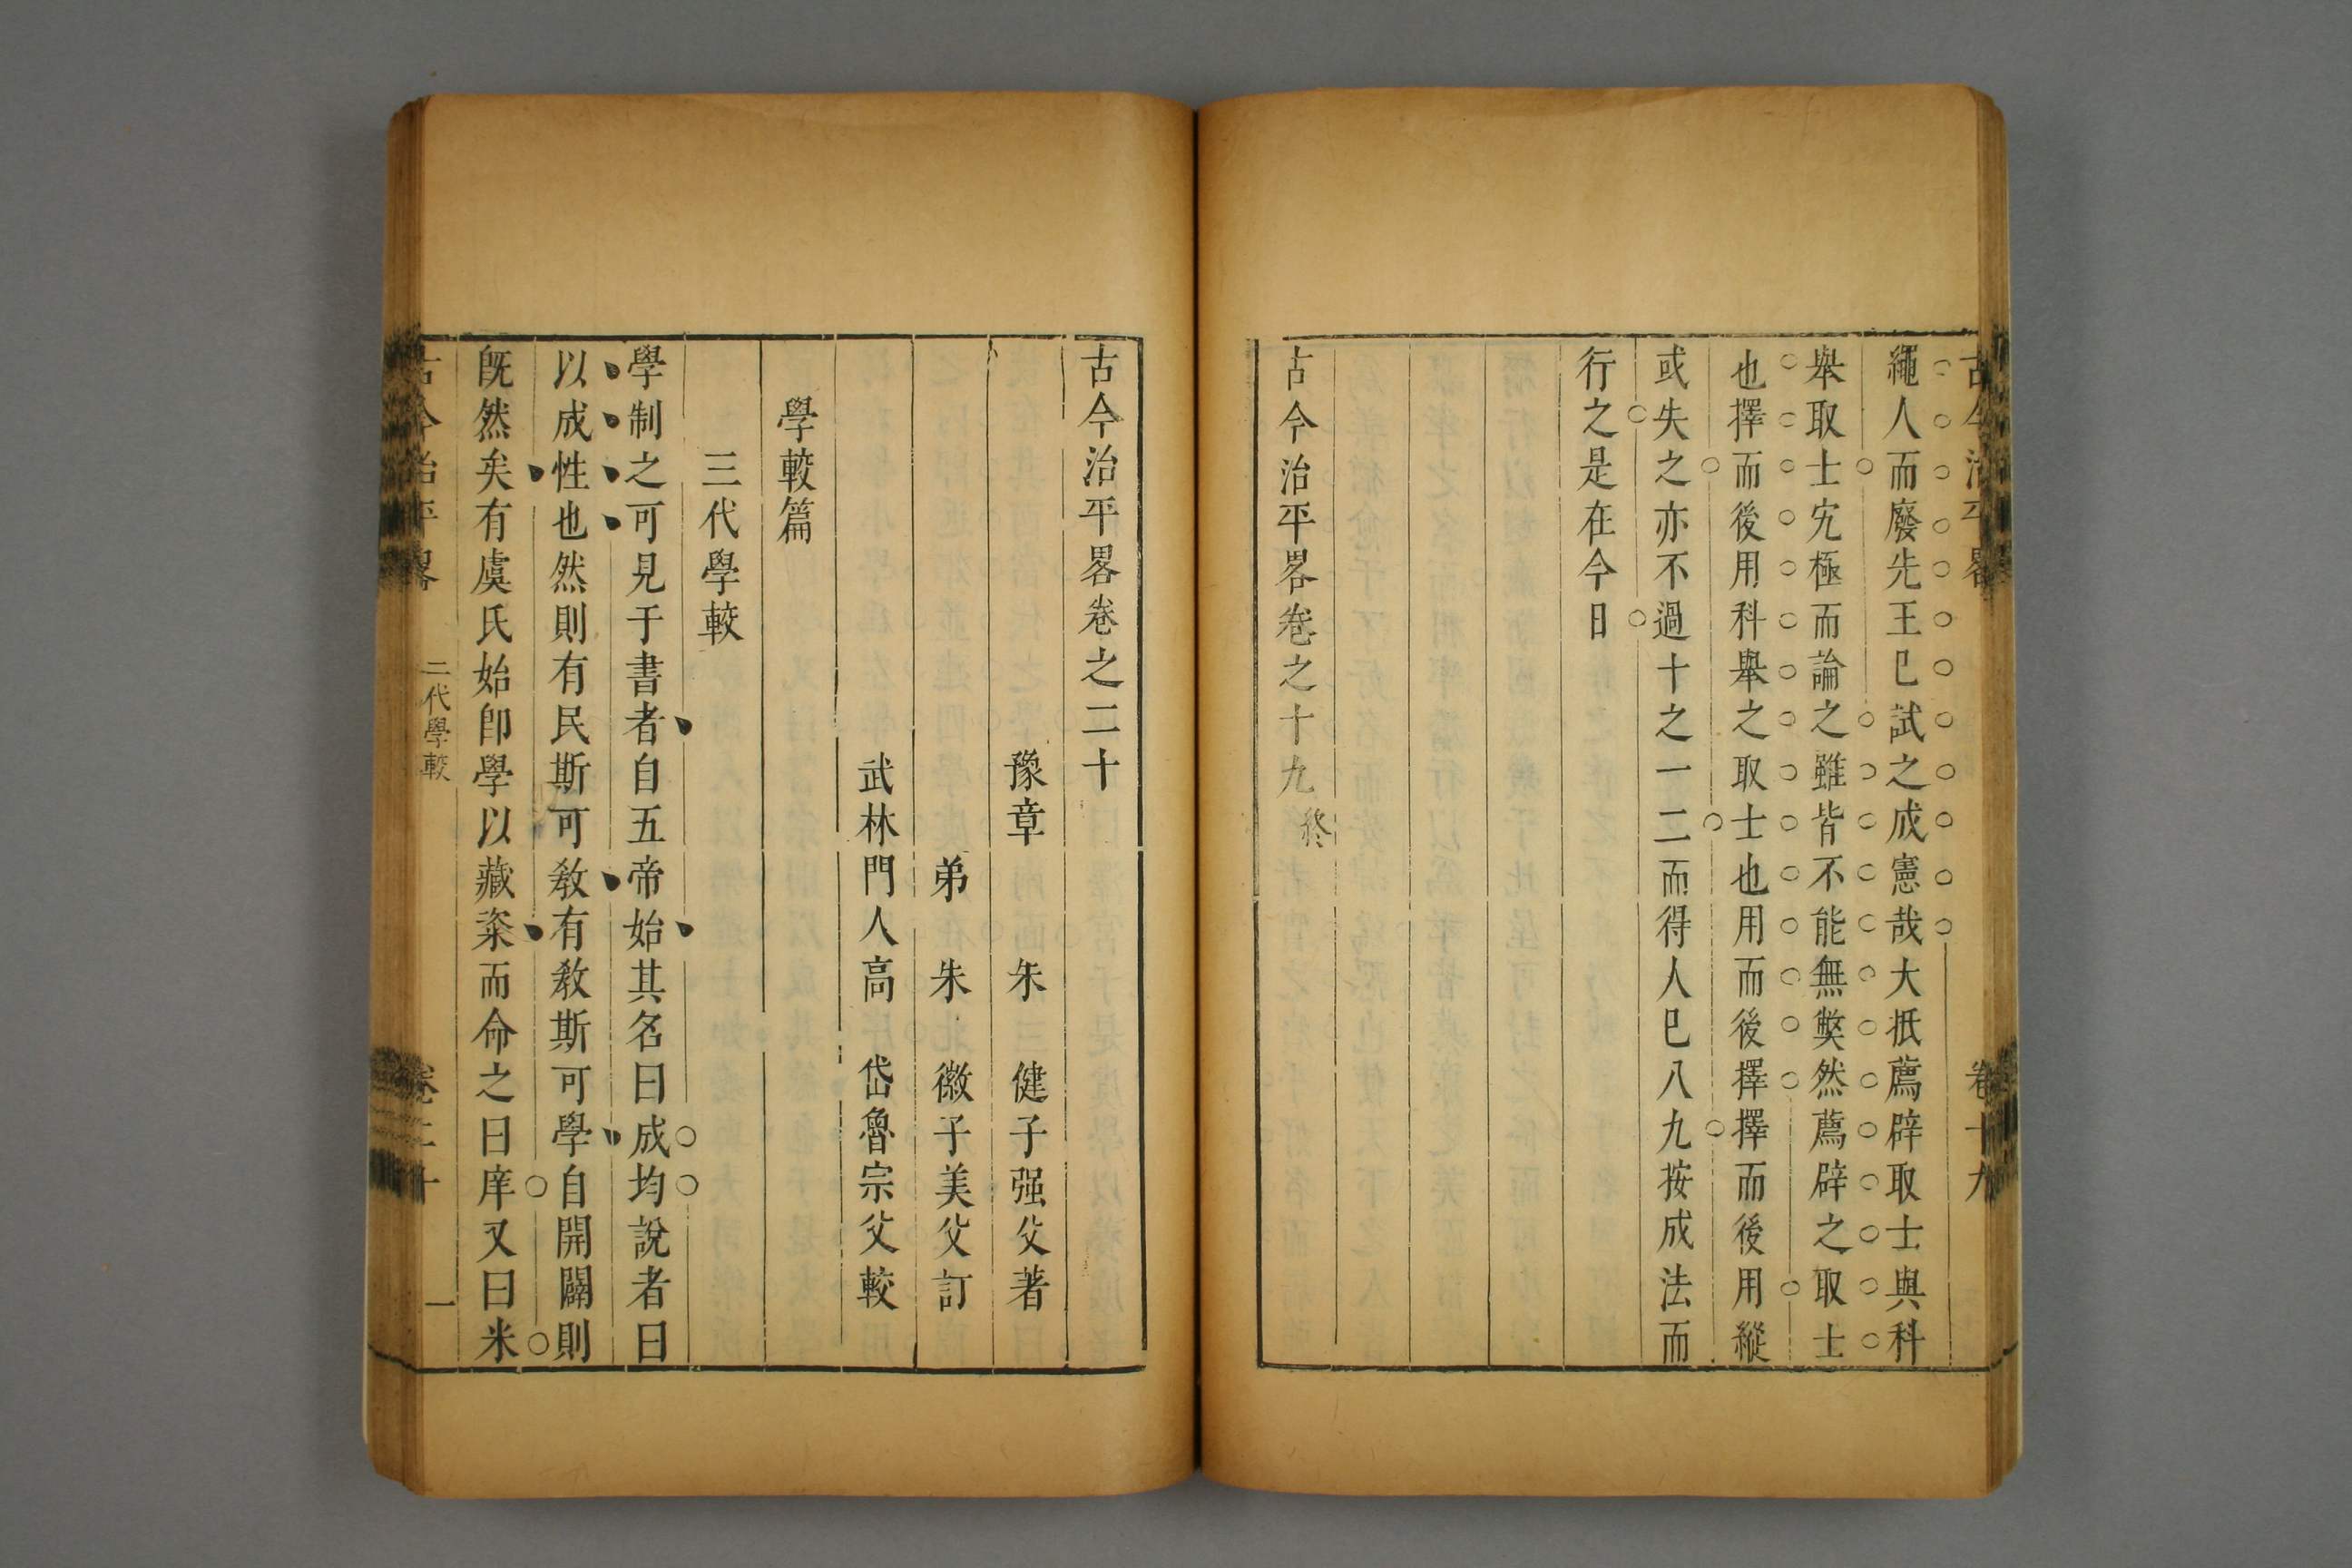 古今治平畧
卷十九
繩人而廢先王已試之成憲哉大抵薦辟取士與科
舉取士究極而論之雖皆不能無獘然薦辟之取士
也擇而後用科舉之取士也用而後擇擇而後用縱
或失之亦不過十之一二而得人已八九按成法而
行之是在今日
古今治平畧卷之十九終
古今治平畧卷之二十
豫章 朱 健子强父著
弟 朱 徽子美父訂
武林門人高 岱魯宗父較
學較篇
三代學較
學制之可見于書者自五帝始其名曰成均說者曰
以成性也然則有民斯可教有教斯可學自開闢則
旣然矣有虞氏始卽學以藏粢而命之曰庠又曰米
古今治平畧
三代學較
卷二十
一